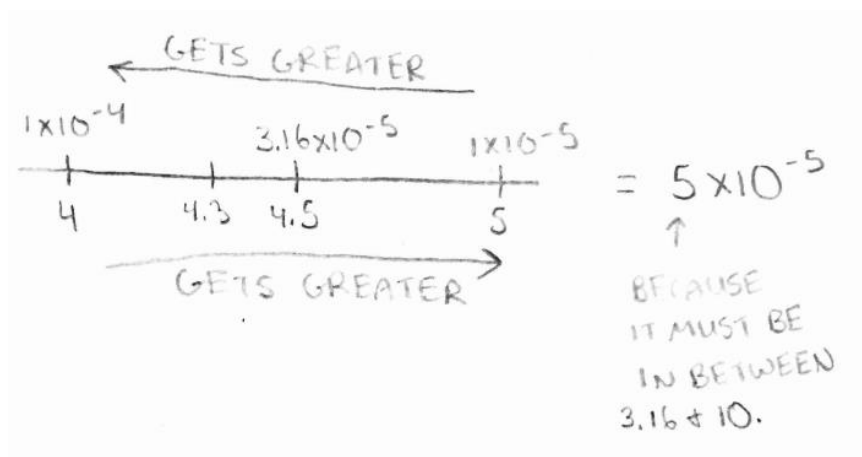 GETS GREATER
1×10⁻⁴ 3.16×10⁻⁵ 1×10⁻⁵
4 4.3 4.5 5
= 5×10⁻⁵
↑
GETS GREATER
BECAUSE
IT MUST BE
IN BETWEEN
3.16 & 10.